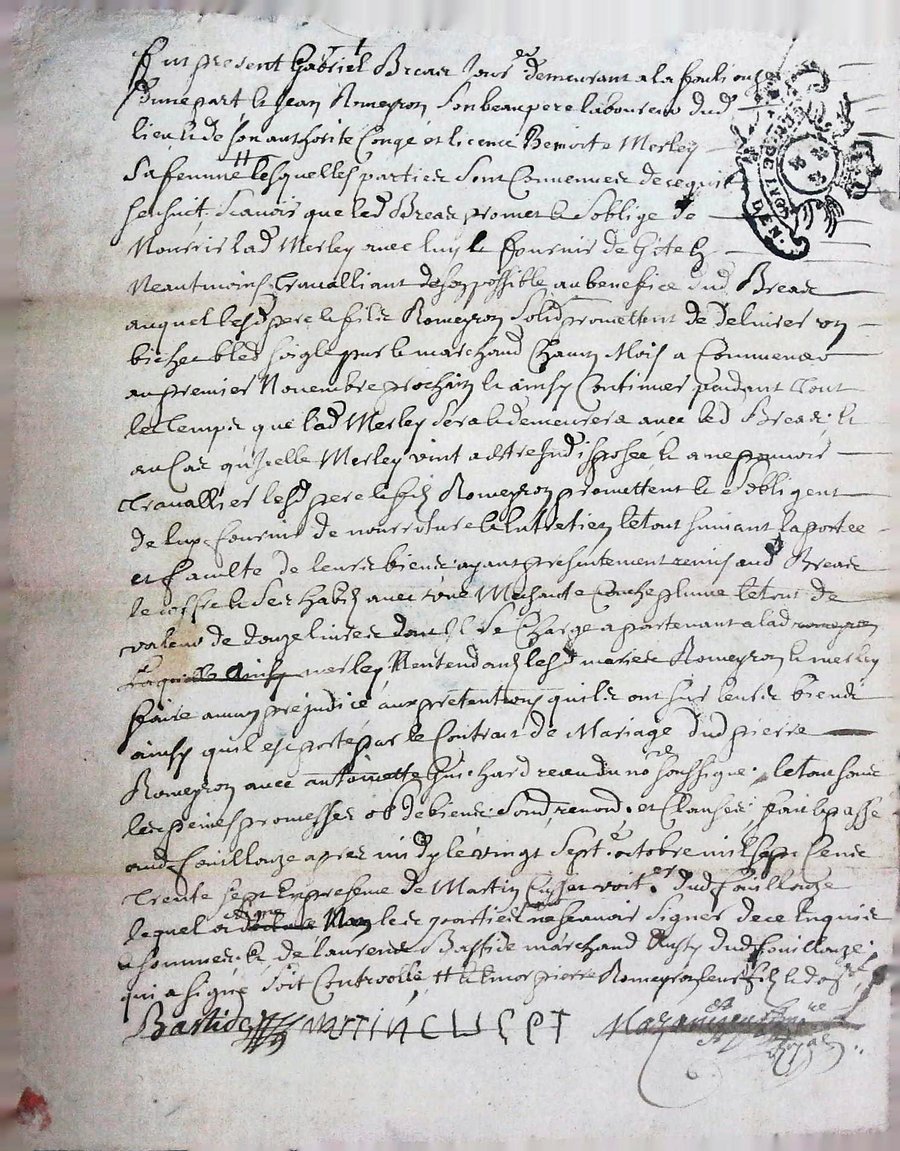 Fut present Gabriel Breat Jour^er demeurant a la fouliouze
Dune part & Jean Romeyron son beaupere laboureur dud
lieu & de son authorité Congé et licence Benoite Merley
Sa femme †† lesquelles parties sont Convenues de ce quil
sensuit, Scavoir que led Breat promet & soblige de
Nourrir lad Merley avec luy & fournir de Gite &
Neantmoins travalliant de son possible au benefice dud Breat
auquel lesd pere & fils Romeyron solid promettent de delivrer un
bichet bled soigle pur & marchand Chacun Mois a Commencer
au premier Novembre prochain & ainsy Continuer pendant Tout
le Temps que lad Merley sera & demeurera avec led Breat, &
au Cas qu'icelle Merley vint a etre indisposée & a ne pouvoir
travallier lesd pere & fils Romeyron promettent & sobligent
de luy fournir de nourriture & Entretien le tout suivant la portee
et faculté de leurs biens ayant presentement remis aud Breat
le coffre & ses habits avec une Mechante Couche plume le tout de
valeur de douze livres dont il se Charge apartenant a lad romeyron
Laquelle Ainsy merley, Nentendant lesd mariés Romeyron & merley
faire aucun prejudice aux pretentions quils ont sur leurs biens
ainsy quil est porté par le Contrat de Mariage dud pierre
Romeyron avec antoinette Guichard receu du no^re soussigné, le tout sous
les peines promesses ob de biens soud, renond, et Clauses, fait & passé
aud fouillouze apres midy le vingt sept^e octobre mil sept Cents
Trente sept En presence de Martin Cuset voit^er dud fouillouze
lequel a Non les parties ne scavoir signer de ce Enquis
& sommés & de laurent Bastide marchand Austy dud fouillouze
qui a signé soit Controollé †† & encor pierre Romeyron leur fils &
Bastide MARTIN CUSET